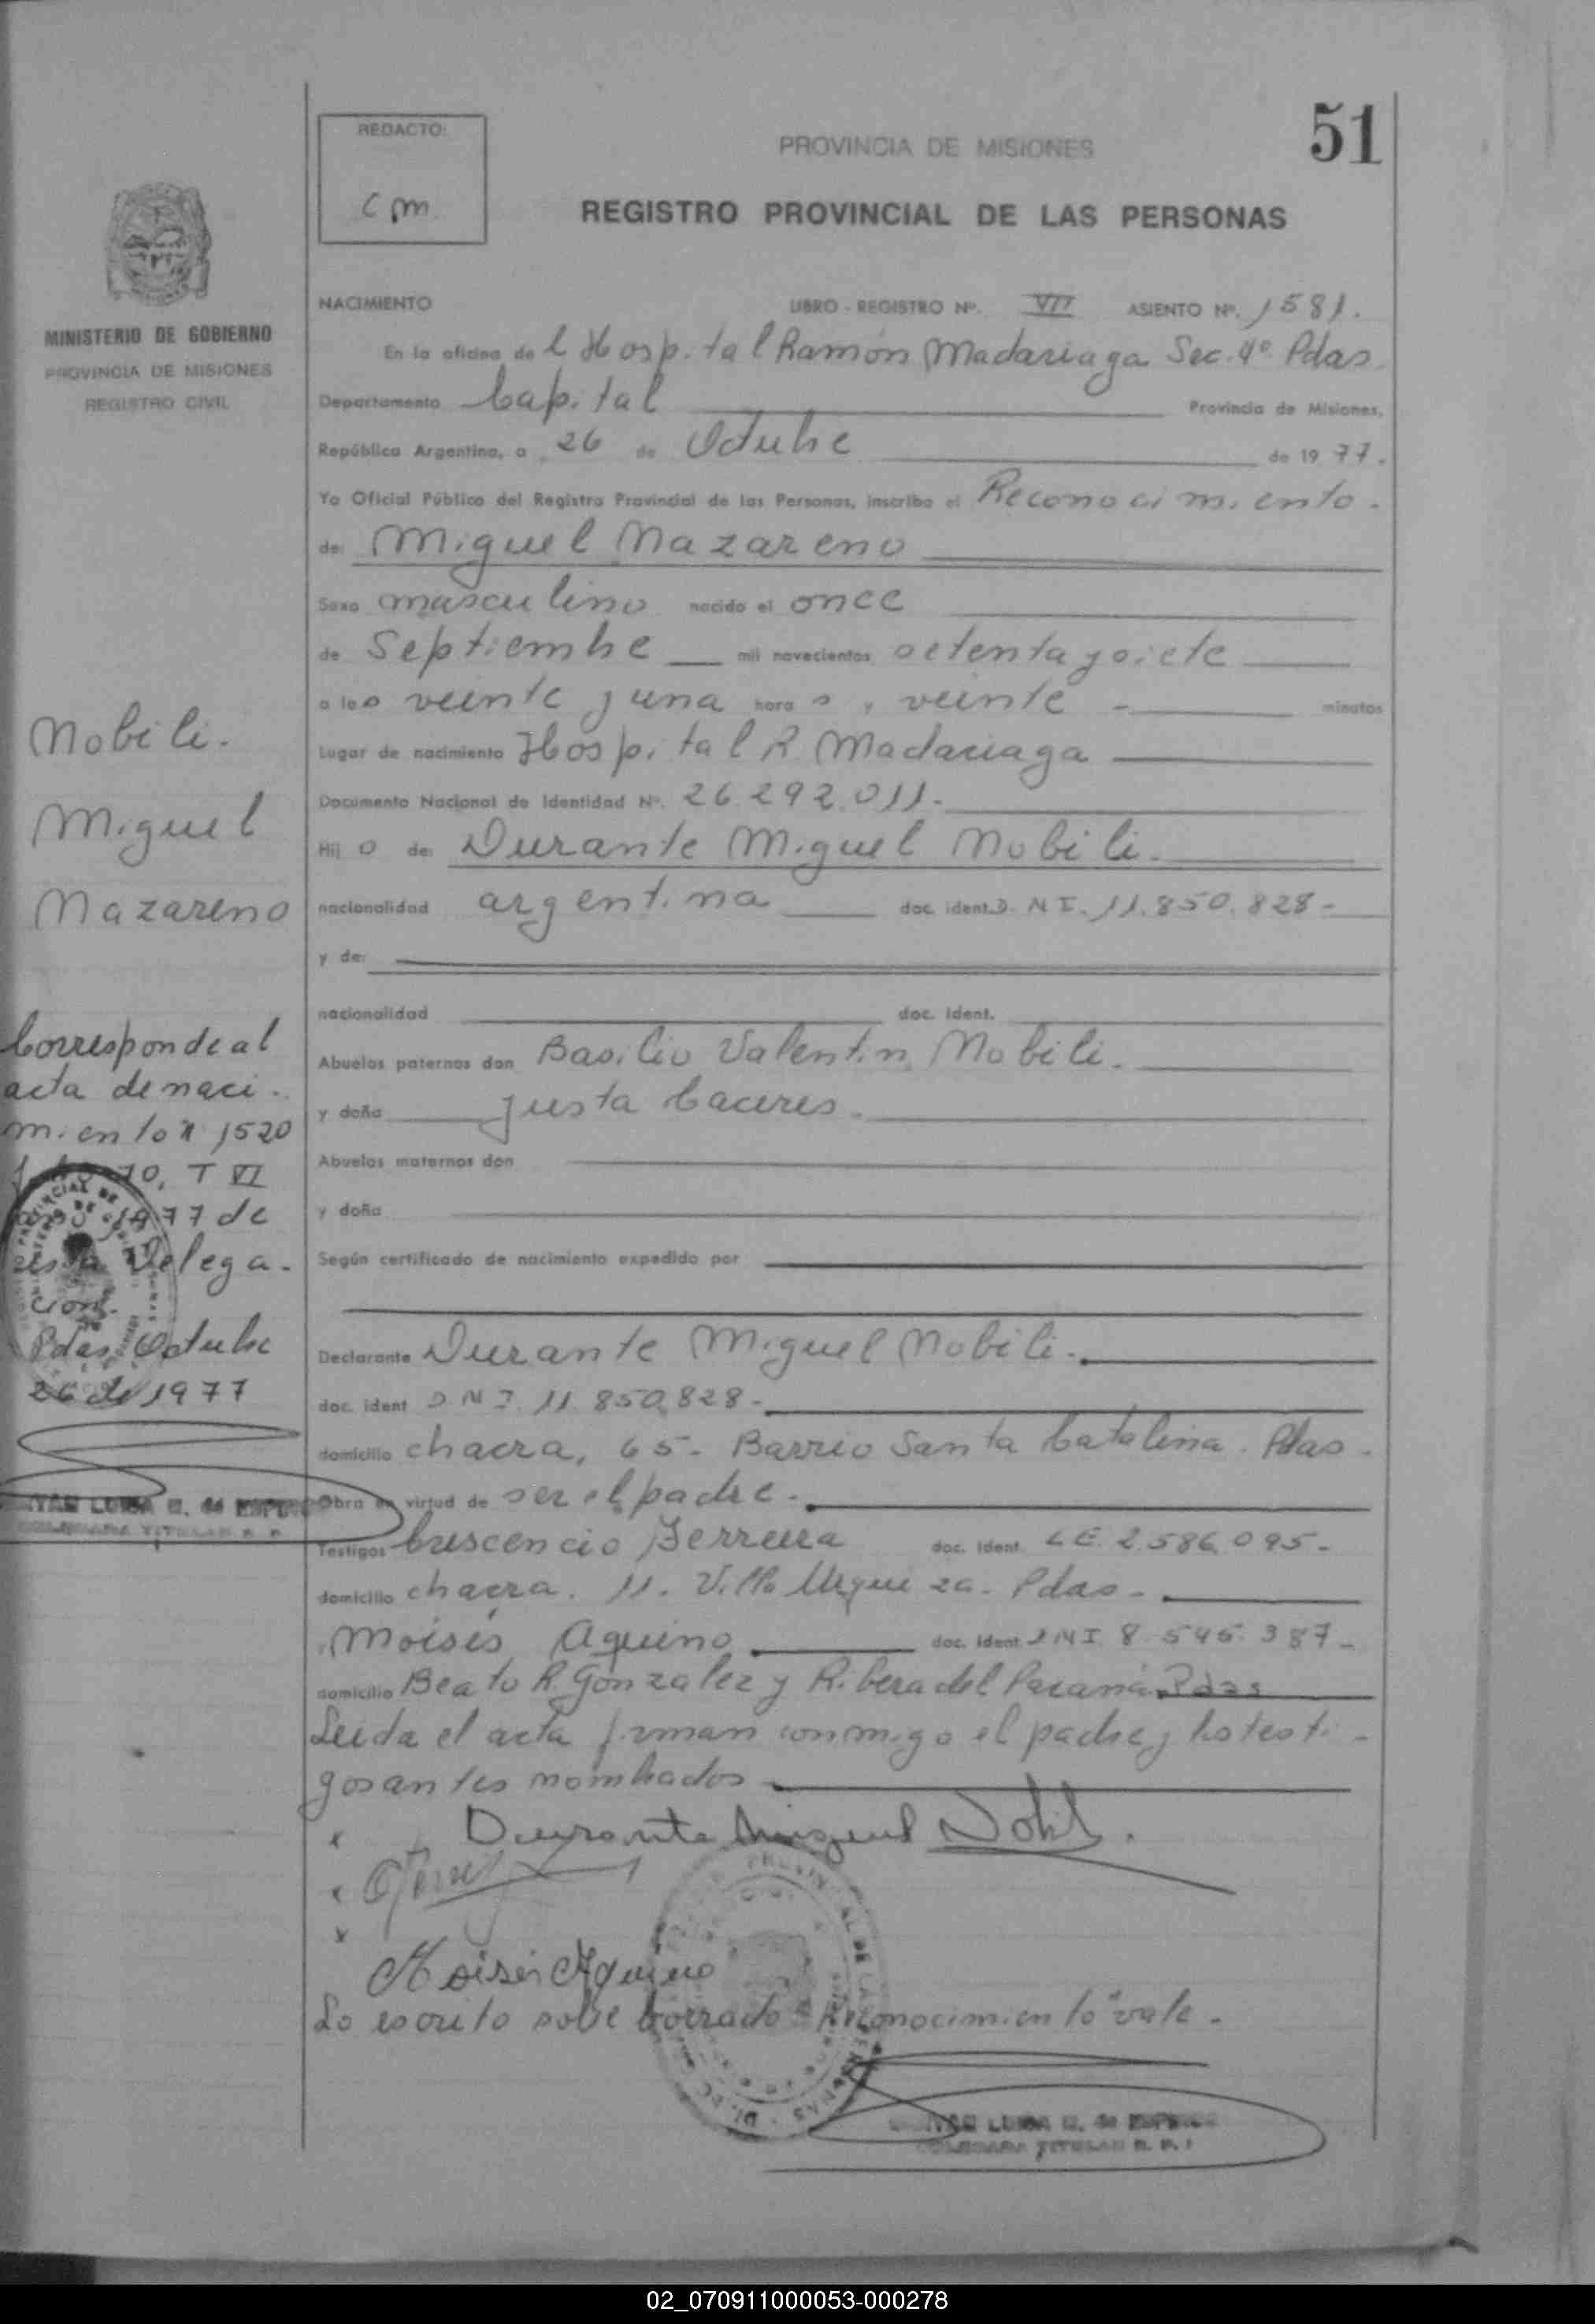 51
REDACTO:
cpm
PROVINCIA DE MISIONES
REGISTRO PROVINCIAL DE LAS PERSONAS
MINISTERIO DE GOBIERNO
PROVINCIA DE MISIONES
REGISTRO CIVIL
NACIMIENTO LIBRO - REGISTRO Nº. VII ASIENTO Nº. 1581.
En la oficina del Hospital Ramón Madariaga Sec. 4º Pdas.
Departamento Capital Provincia de Misiones,
República Argentina, a 26 de Octubre de 1977.
Yo Oficial Público del Registro Provincial de las Personas, inscribo el Reconocimiento.
de: Miguel Nazareno
Sexo masculino nacido el once
de Septiembre mil novecientos setenta y siete
a las veinte y una horas y veinte minutos
Lugar de nacimiento Hospital R Madariaga
Documento Nacional de Identidad Nº. 26.292.011.
Hijo de: Durante Miguel Nobili.
nacionalidad argentina doc. ident. D.N.I. 11.850.828-
y de:
nacionalidad doc. ident.
Abuelos paternos don Basilio Valentin Nobili.
y doña Justa Caceres.
Abuelos maternos don
y doña
Según certificado de nacimiento expedido por
Declarante Durante Miguel Nobili.
doc. ident D.N.I. 11.850.828-
domicilio chacra, 65- Barrio Santa Catalina. Pdas.
Obra en virtud de ser el padre.
Testigos Crescencio Ferreira doc. ident. L.E. 2.586.095-
domicilio chacra. 11. Villa Urquiza- Pdas-
y Moisés Aquino doc. ident. DNI 8.545.387-
domicilio Beato R. Gonzalez y Ribera del Paraná Pdas
Leida el acta firman conmigo el padre y los testi-
gos antes nombrados
x Durante Miguel Nobili.
x
x
Moisés Aquino
Lo escrito sobre borrado "Reconocimiento" vale.
LUISA
Nobili.
Miguel
Nazareno
Corresponde al
acta de naci-
miento n 1520
70, T VI
1977 de
esta Delega-
cion.
Pdas, Octubre
26 de 1977
LUISA
02_070911000053-000278